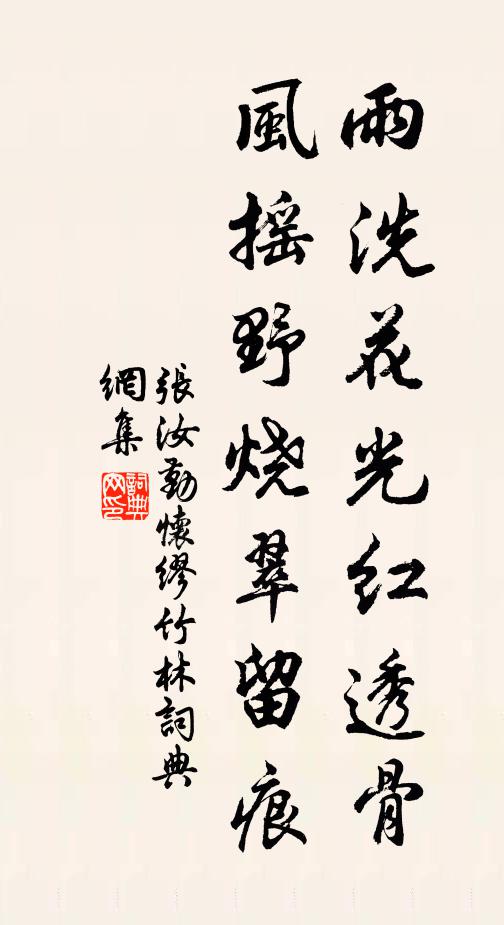 雨洗花光红透骨
風摇野烧翠留痕
張汝勤懷繆竹林詞典
網集
詞典
网印